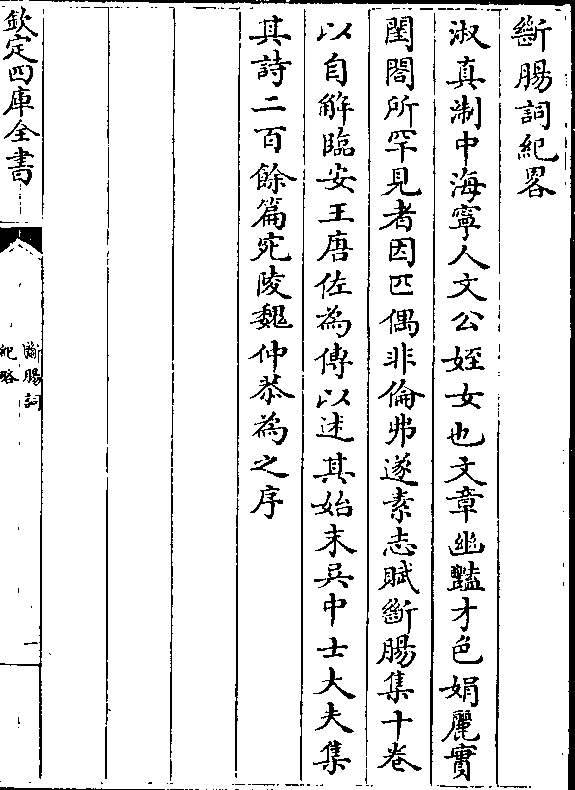 斷腸詞紀畧
淑真淛中海寧人文公姪女也文章幽豔才色娟麗實
閨閤所罕見者因匹偶非倫弗遂素志賦斷腸集十卷
以自解臨安王唐佐為傳以述其始末吳中士大夫集
其詩二百餘篇宛陵魏仲恭為之序
欽定四庫全書
斷腸詞
紀略
一